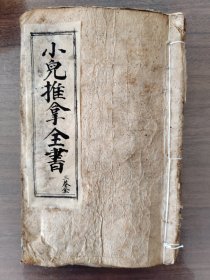 小兒推拿全書
三卷全